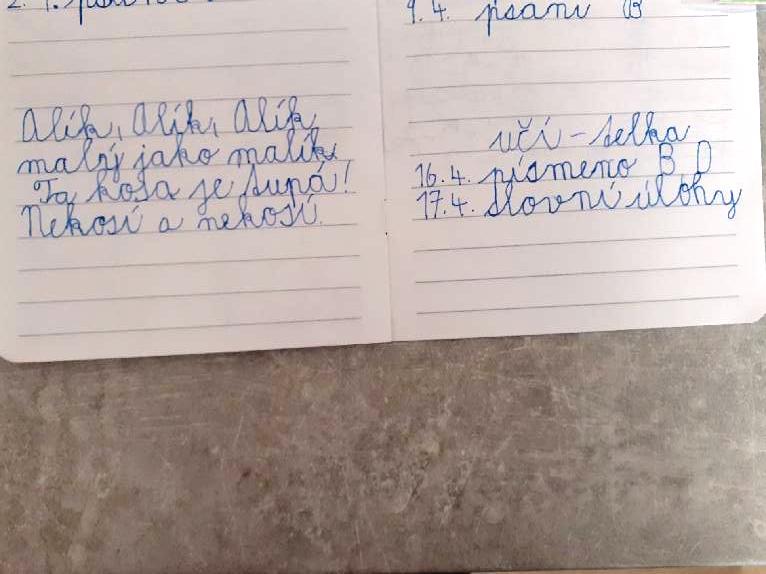 Alík, Alík, Alík,
malý jako malík.
Ta kosa je tupá!
Nekosí a nekosí.
9.4. psaní B
učí-telka
16.4. písmeno B D
17.4. slovní úlohy